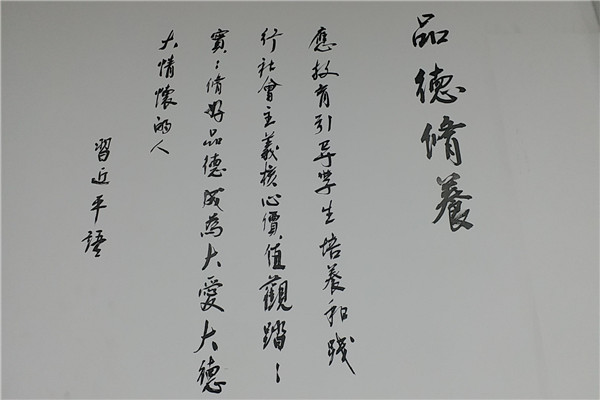 品德脩養
應教育引导学生培養和踐
行社會主義核心價值觀踏〻
實〻脩好品德成為大愛大德
大情懷的人
習近平語